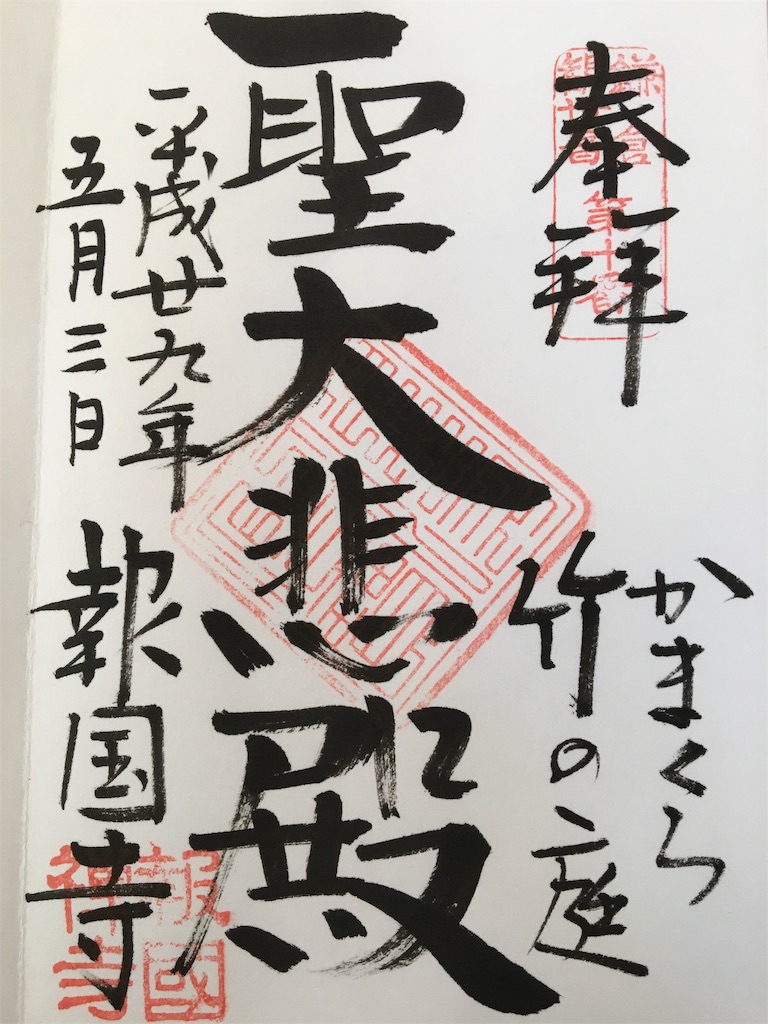 奉拝
鎌倉
第十番
かまくら
竹の庭
聖大悲殿
平成廿九年
五月三日
報国寺
報國
禅寺